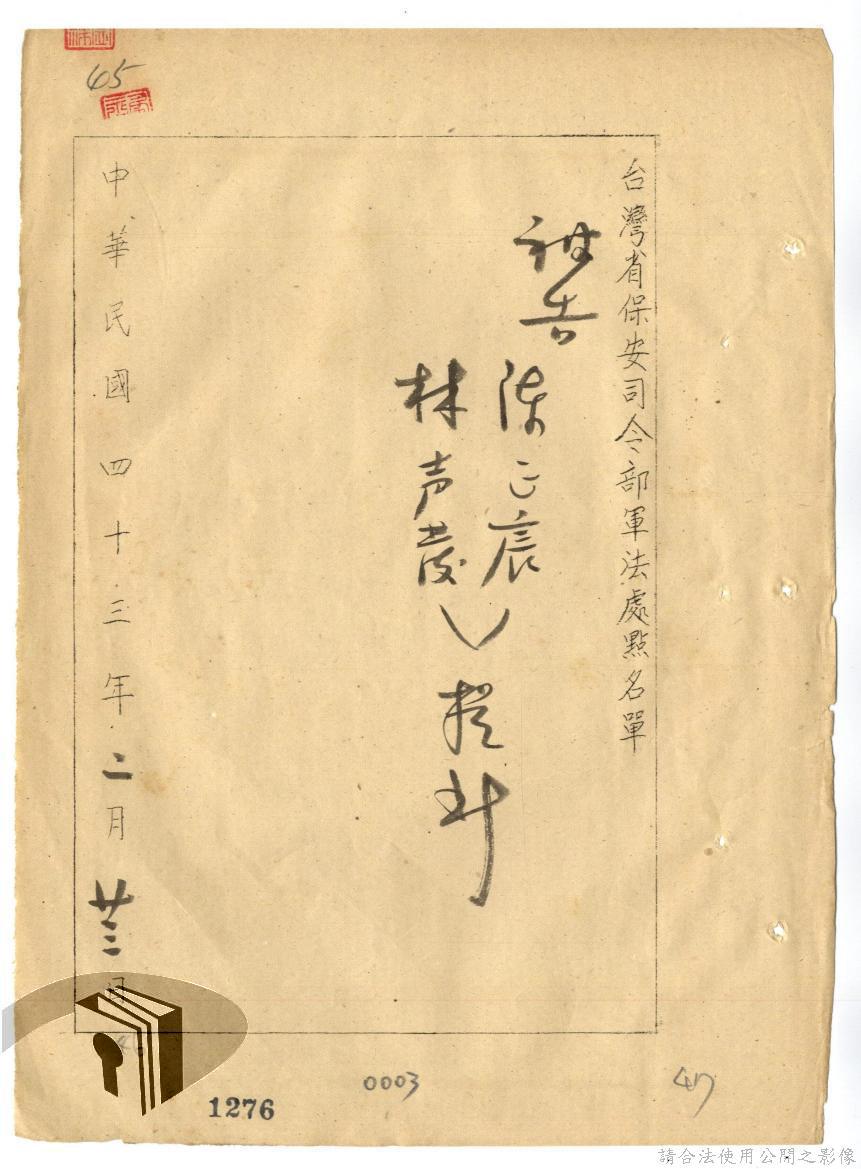 45
台灣省保安司令部軍法處點名單
被告
陳正宸
林声發
提訊
中華民國四十三年二月廿三日
1276
0003
47
請合法使用公開之影像